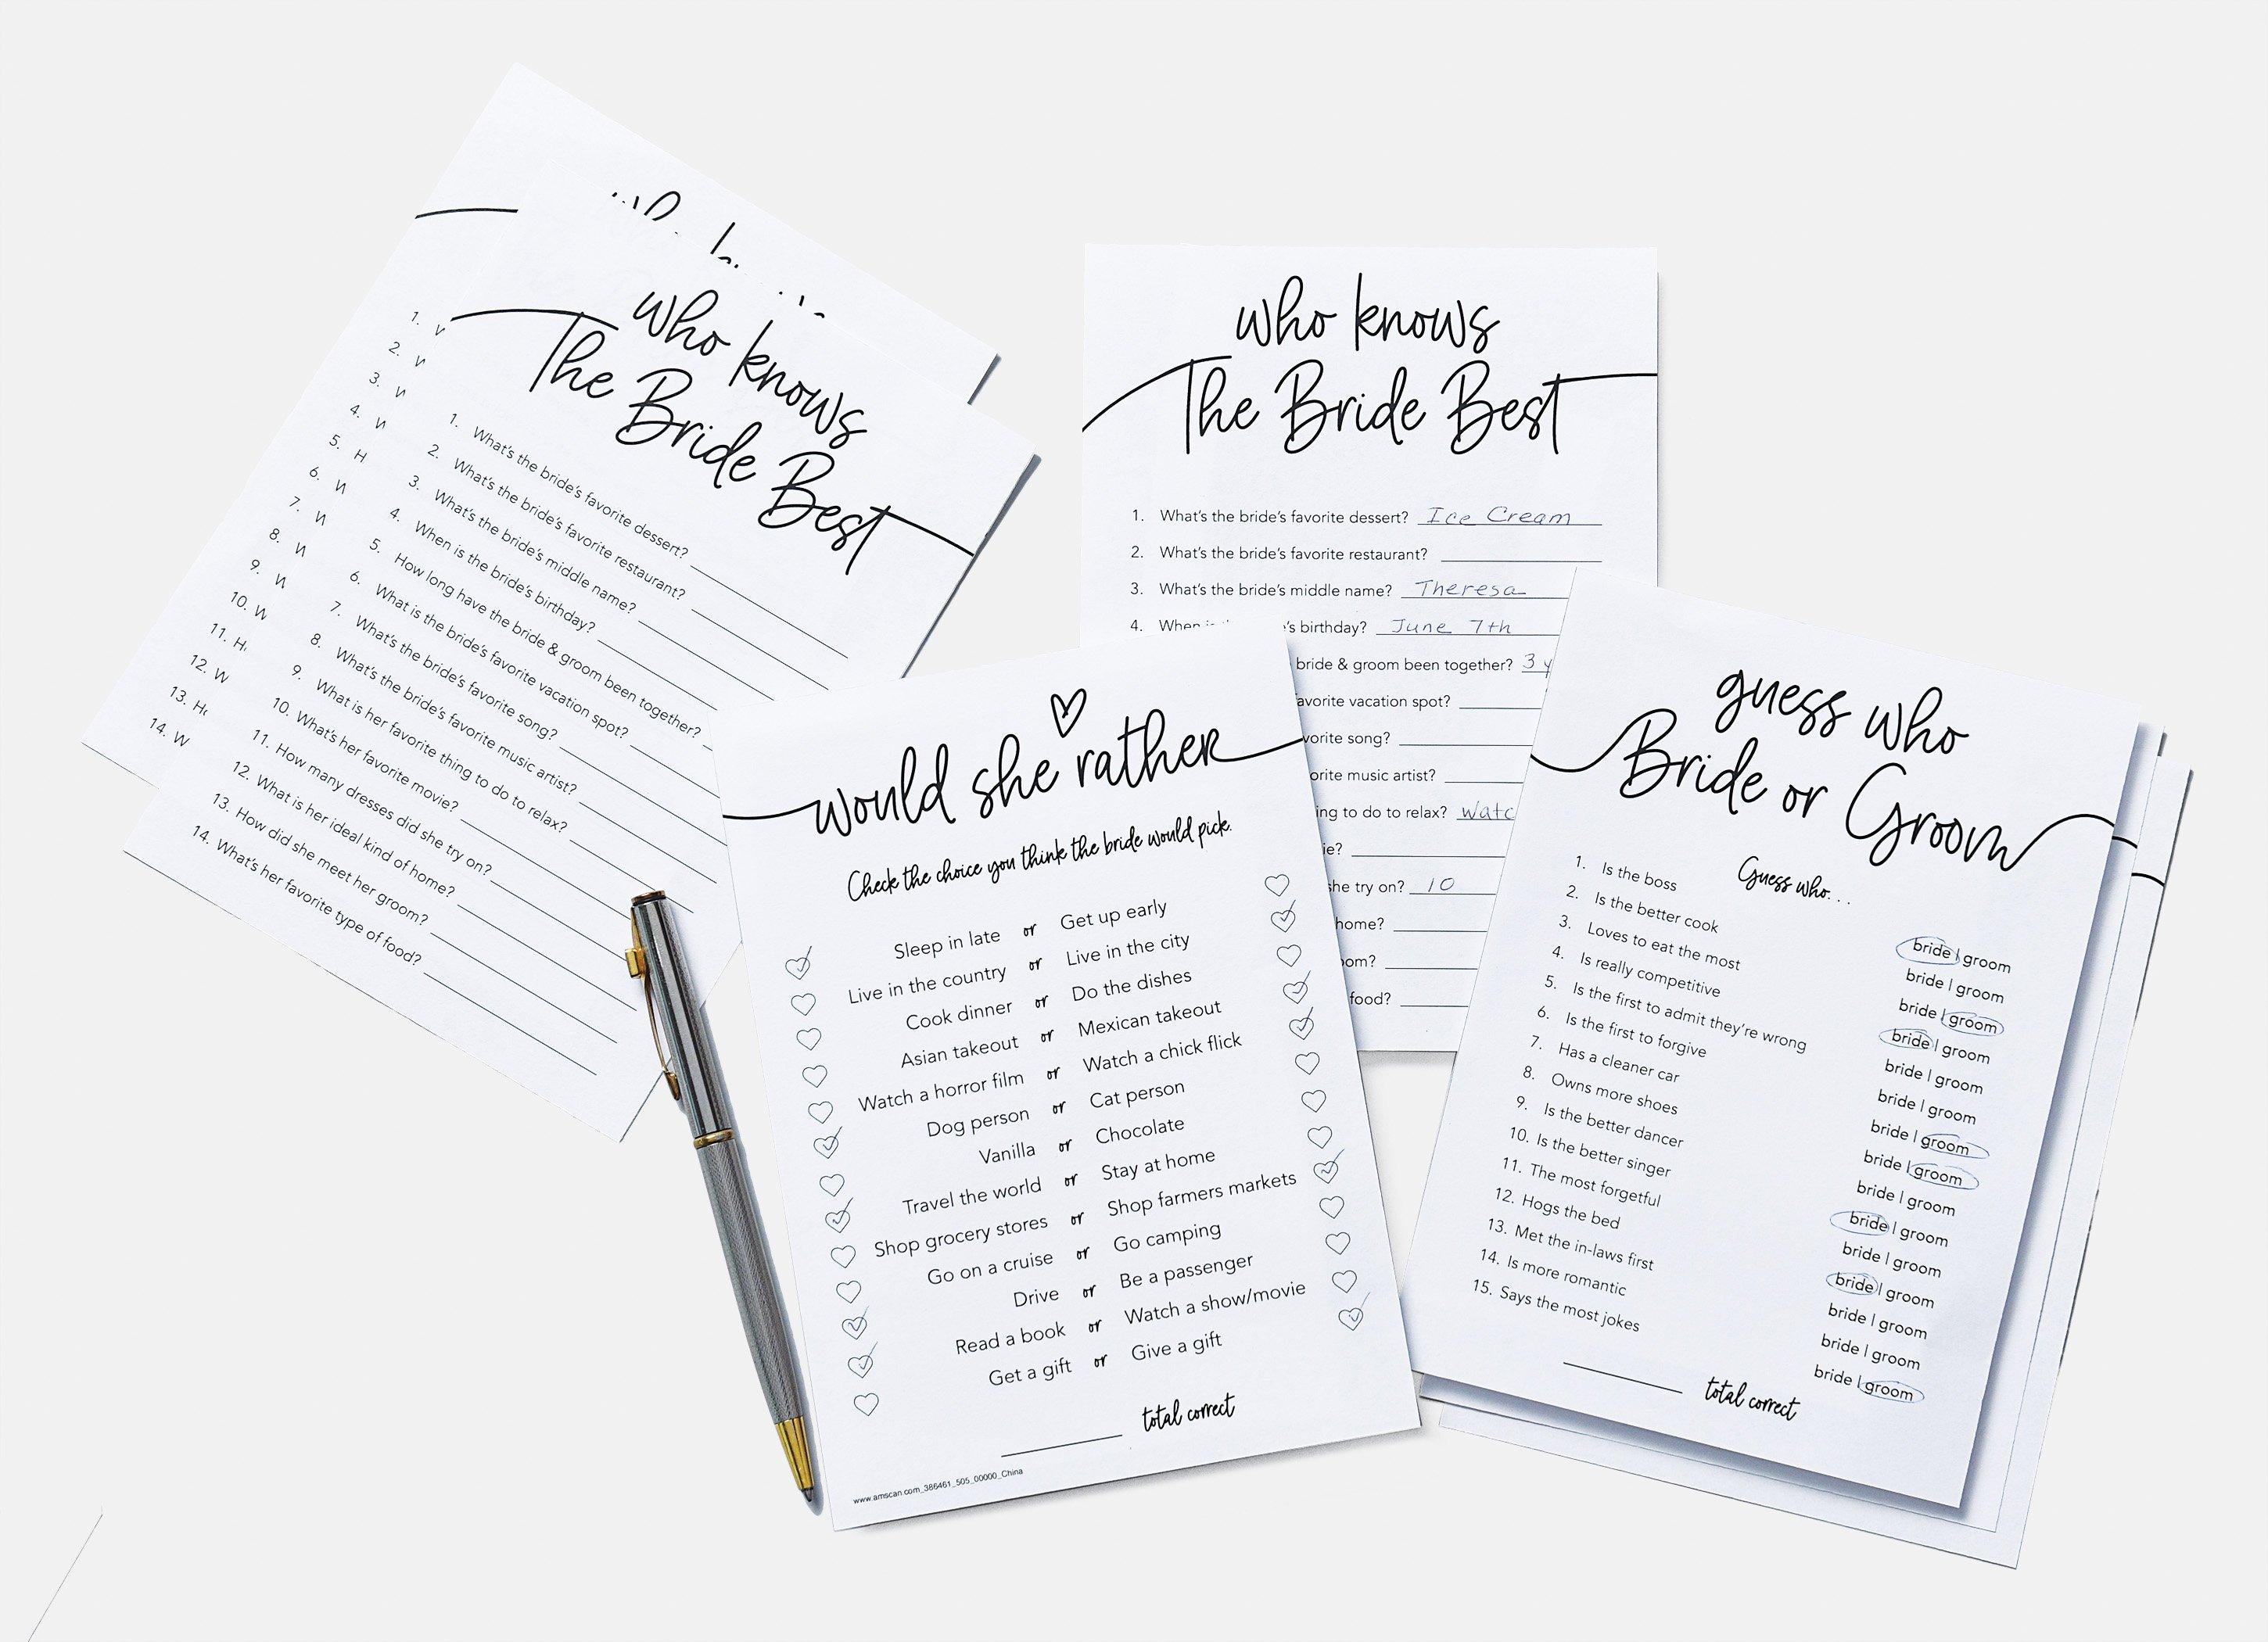 who knows
The Bride Best
1. What's the bride's favorite dessert?
2. What's the bride's favorite restaurant?
3. What's the bride's middle name?
4. When is the bride's birthday?
5. How long have the bride & groom been together?
6. What is the bride's favorite vacation spot?
7. What's the bride's favorite song?
8. What's the bride's favorite music artist?
9. What is her favorite thing to do to relax?
10. What's her favorite movie?
11. How many dresses did she try on?
12. What is her ideal kind of home?
13. How did she meet her groom?
14. What's her favorite type of food?
1. W
2. W
3. W
4. W
5. H
6. W
7. W
8. W
9. W
10. W
11. H
12. W
13. Ho
14. W
who knows
The Bride Best
1. What's the bride's favorite dessert? Ice Cream
2. What's the bride's favorite restaurant?
3. What's the bride's middle name? Theresa
4. When 's birthday? June 7th
bride & groom been together? 3 y
avorite vacation spot?
vorite song?
orite music artist?
ing to do to relax? Watc
ie?
she try on? 10
home?
om?
food?
would she rather
Check the choice you think the bride would pick.
Sleep in late or Get up early
Live in the country or Live in the city
Cook dinner or Do the dishes
Asian takeout or Mexican takeout
Watch a horror film or Watch a chick flick
Dog person or Cat person
Vanilla or Chocolate
Travel the world or Stay at home
Shop grocery stores or Shop farmers markets
Go on a cruise or Go camping
Drive or Be a passenger
Read a book or Watch a show/movie
Get a gift or Give a gift
total correct
www.amscan.com_386461_505_00000_China
guess who
Bride or Groom
Guess who. . .
1. Is the boss bride | groom
2. Is the better cook bride | groom
3. Loves to eat the most bride | groom
4. Is really competitive bride | groom
5. Is the first to admit they're wrong bride | groom
6. Is the first to forgive bride | groom
7. Has a cleaner car bride | groom
8. Owns more shoes bride | groom
9. Is the better dancer bride | groom
10. Is the better singer bride | groom
11. The most forgetful bride | groom
12. Hogs the bed bride | groom
13. Met the in-laws first bride | groom
14. Is more romantic bride | groom
15. Says the most jokes bride | groom
total correct